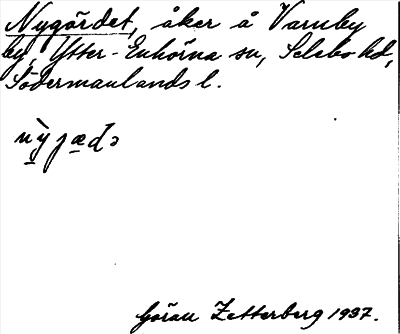 Nygärdet, åker å Varnby
by, Ytter-Enhörna sn, Selebo hd,
Södermanlands l.
nỳjædə
Göran Zetterberg 1937.